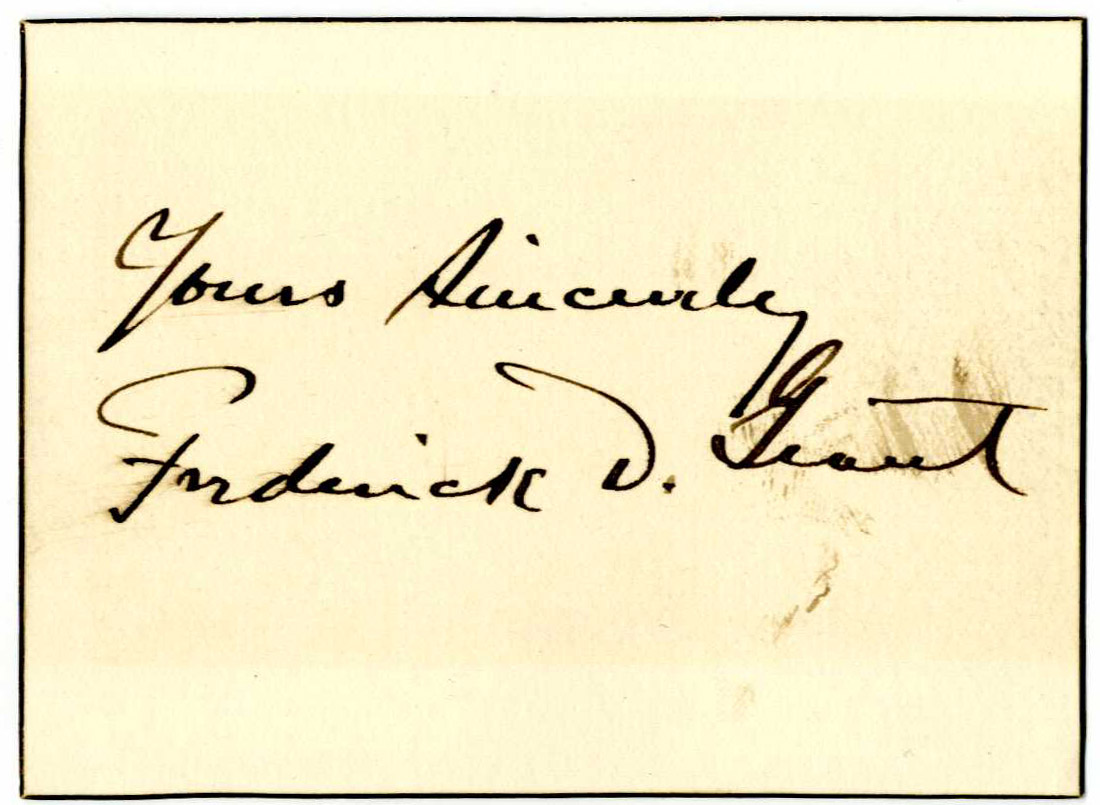 Yours Sincerely
Frederick D. Grant